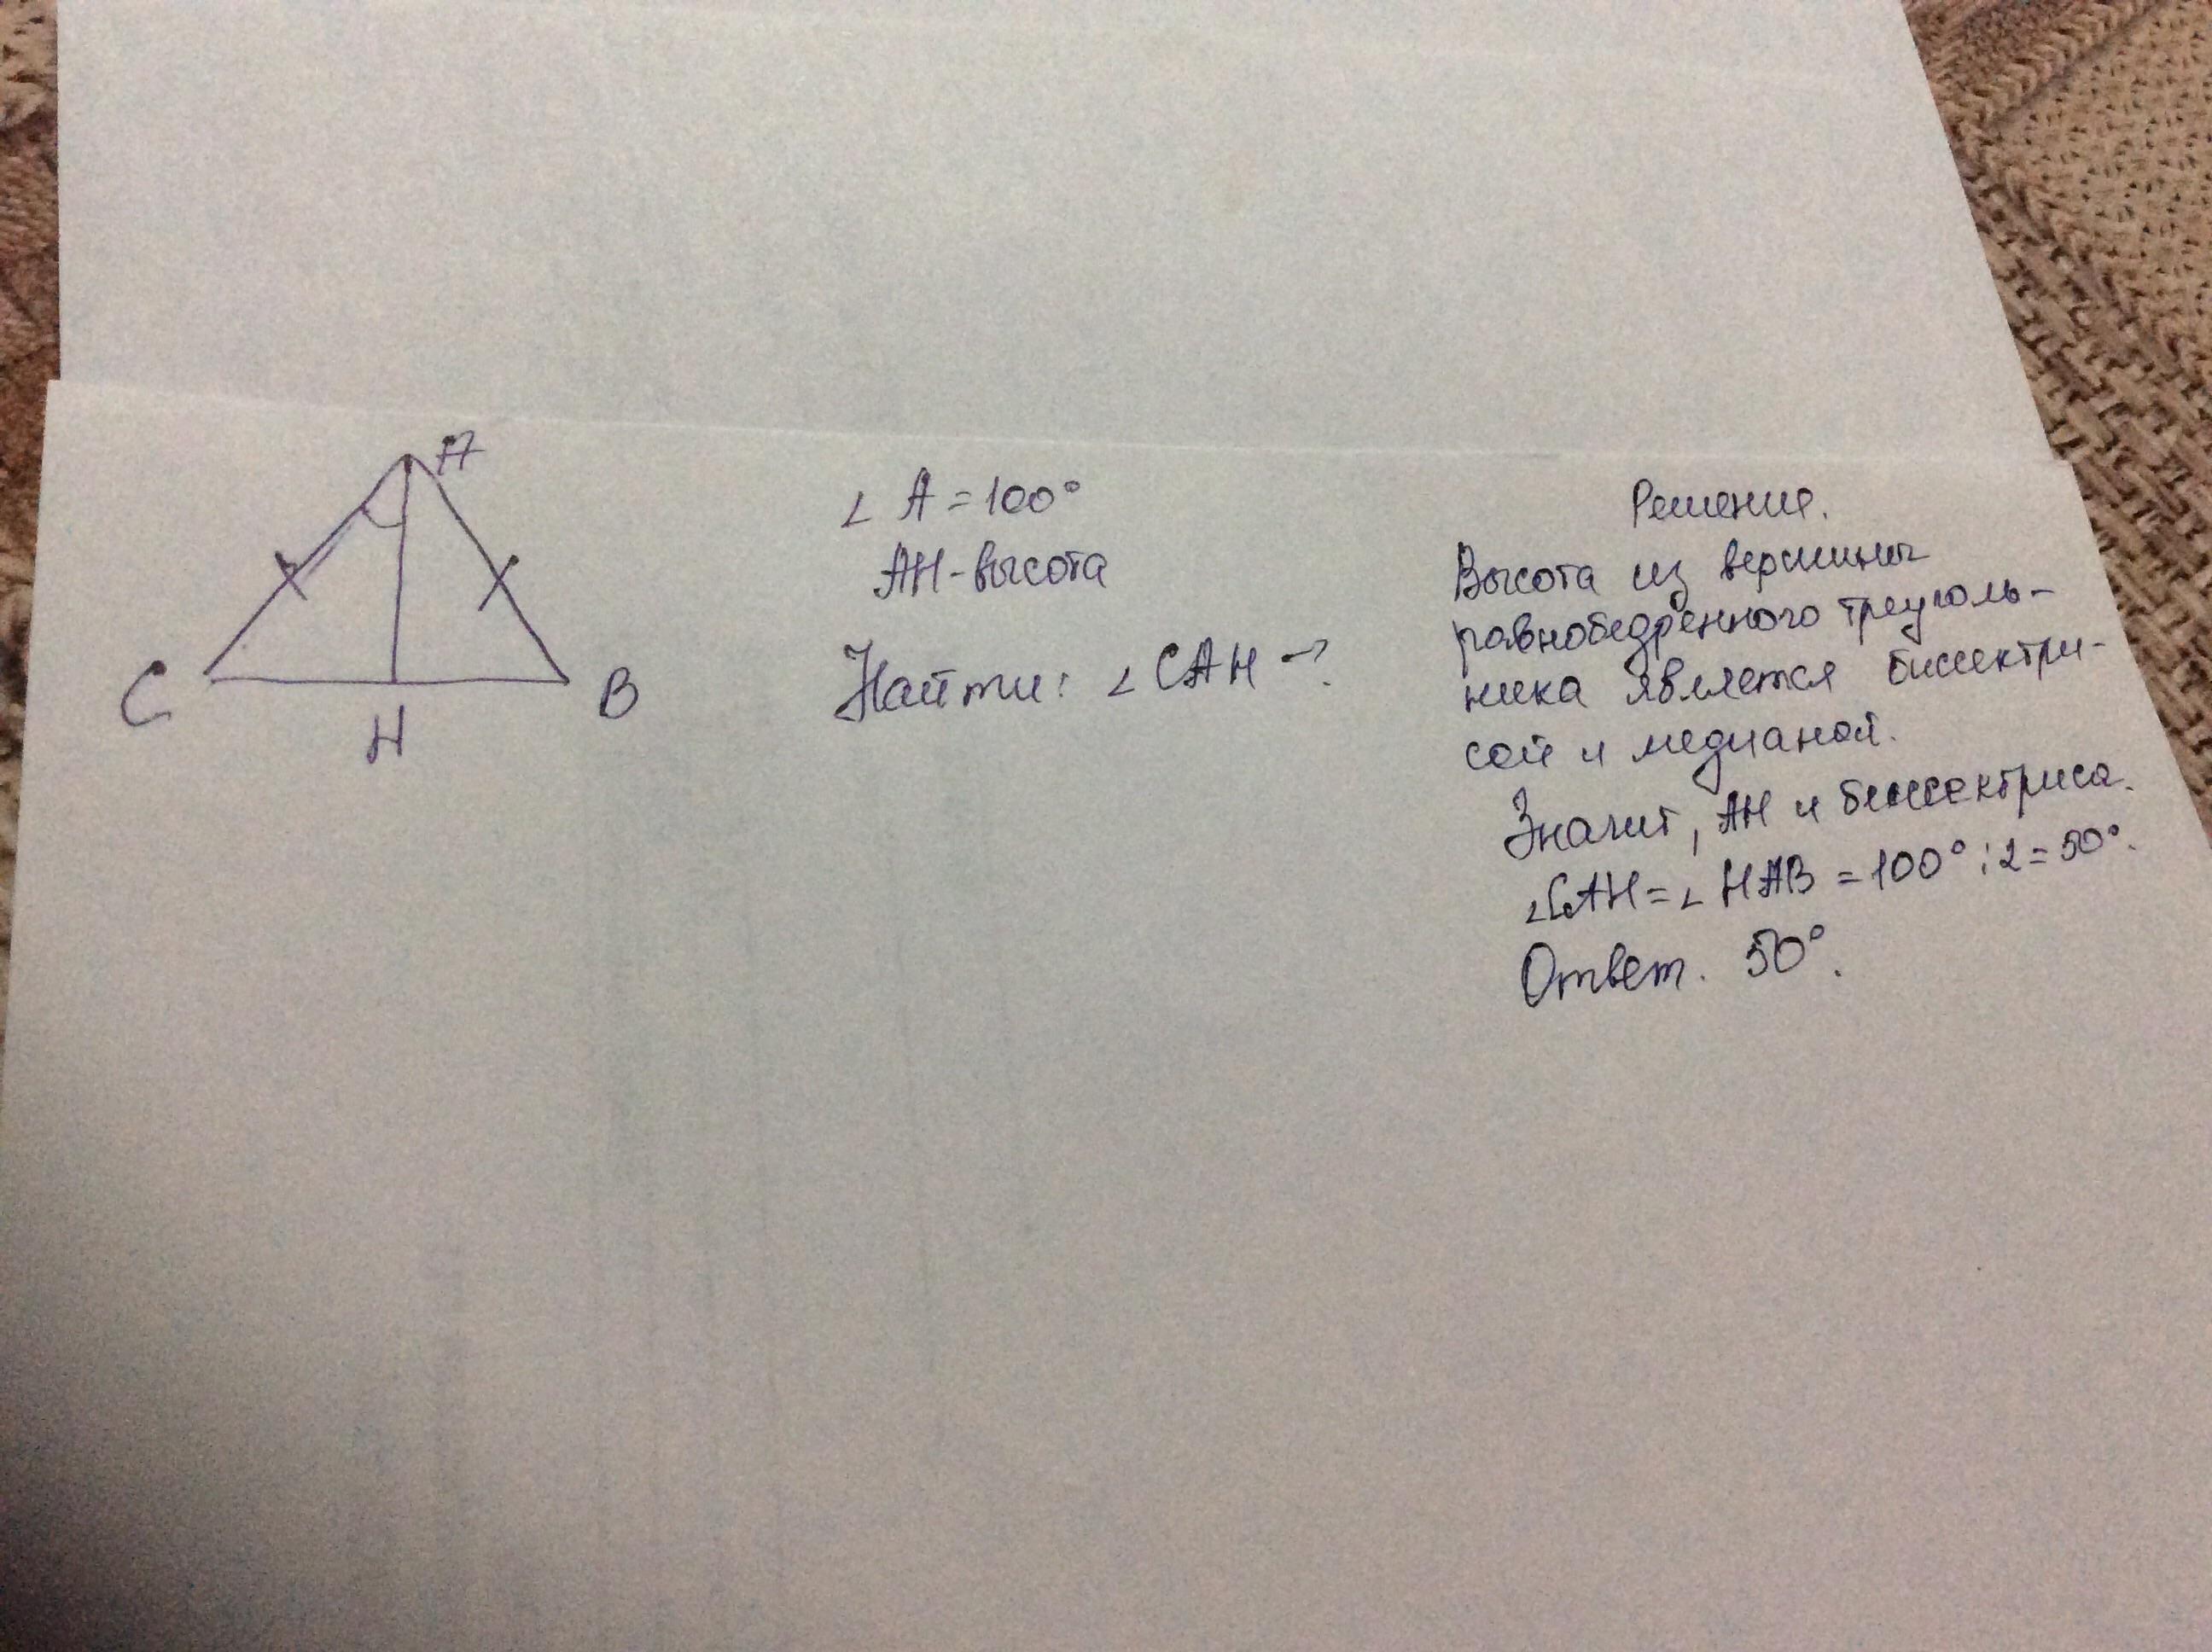 A
C
B
H
∠ A = 100°
AH - высота
Найти: ∠ CAH - ?
Решение.
Высота из вершины
равнобедренного треуголь-
ника является биссектри-
сой и медианой.
Значит, AH и биссектриса.
∠CAH = ∠ HAB = 100° : 2 = 50°.
Ответ. 50°.